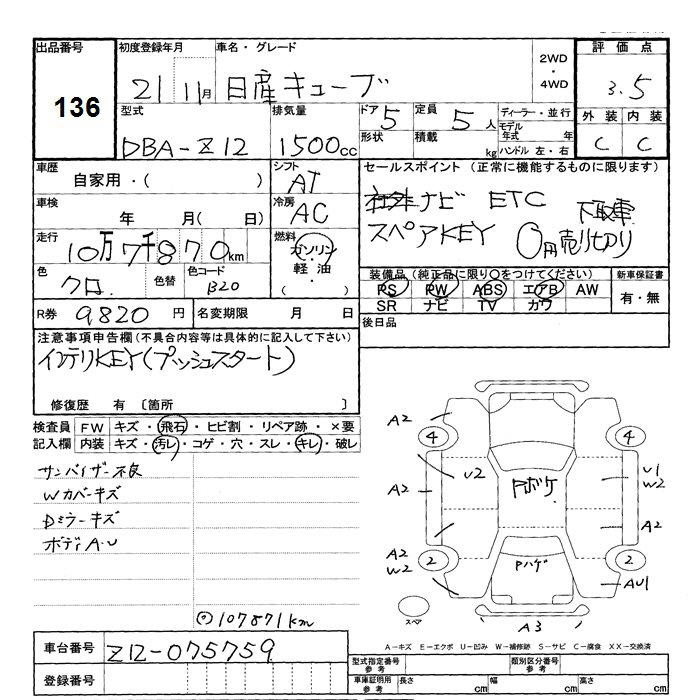 出品番号
136
初度登録年月
21 11月
車名・グレード
日産キューブ
2WD
・
4WD
評価点
3.5
型式
DBA-Z12
排気量
1500cc
ドア 5
形状
定員 5人
積載 kg
ディーラー・並行
モデル年式 年
ハンドル 左・右
外装 内装
C C
車歴
自家用・( )
シフト
AT
セールスポイント (正常に機能するものに限ります)
社外ナビ ETC 下取車
スペアKEY 0円売り切り
車検
年 月( 日)
冷房
AC
走行
10万7千870km
燃料
ガソリン
・
軽油
・
( )
色
クロ
色替
色コード
B20
装備品(純正品に限り○をつけてください)
PS PW ABS エアB AW
SR ナビ TV カワ
新車保証書
有・無
R券 9820円
名変期限 月 日
後日品
注意事項申告欄(不具合内容等は具体的に記入して下さい)
インテリKEY(プッシュスタート)
修復歴 有 〔箇所 〕
検査員記入欄
FW キズ・飛石・ヒビ割・リペア跡・×要
内装 キズ・汚レ・コゲ・穴・スレ・キレ・破レ
サンバイザー不良
Wカバーキズ
Dミラーキズ
ボディA.U
◎107871km
A2
4
4
U2
Pボケ
U1
W2
A2
A2
A2
W2
2
2
Pハゲ
AU1
スペア
A3
A-キズ E-エクボ U-凹み W-補修跡 S-サビ C-腐食 XX-交換済
車台番号 Z12-075759
登録番号
型式指定番号
参考
類別区分番号
参考
車庫証明用
参考
長さ cm
幅 cm
高さ cm